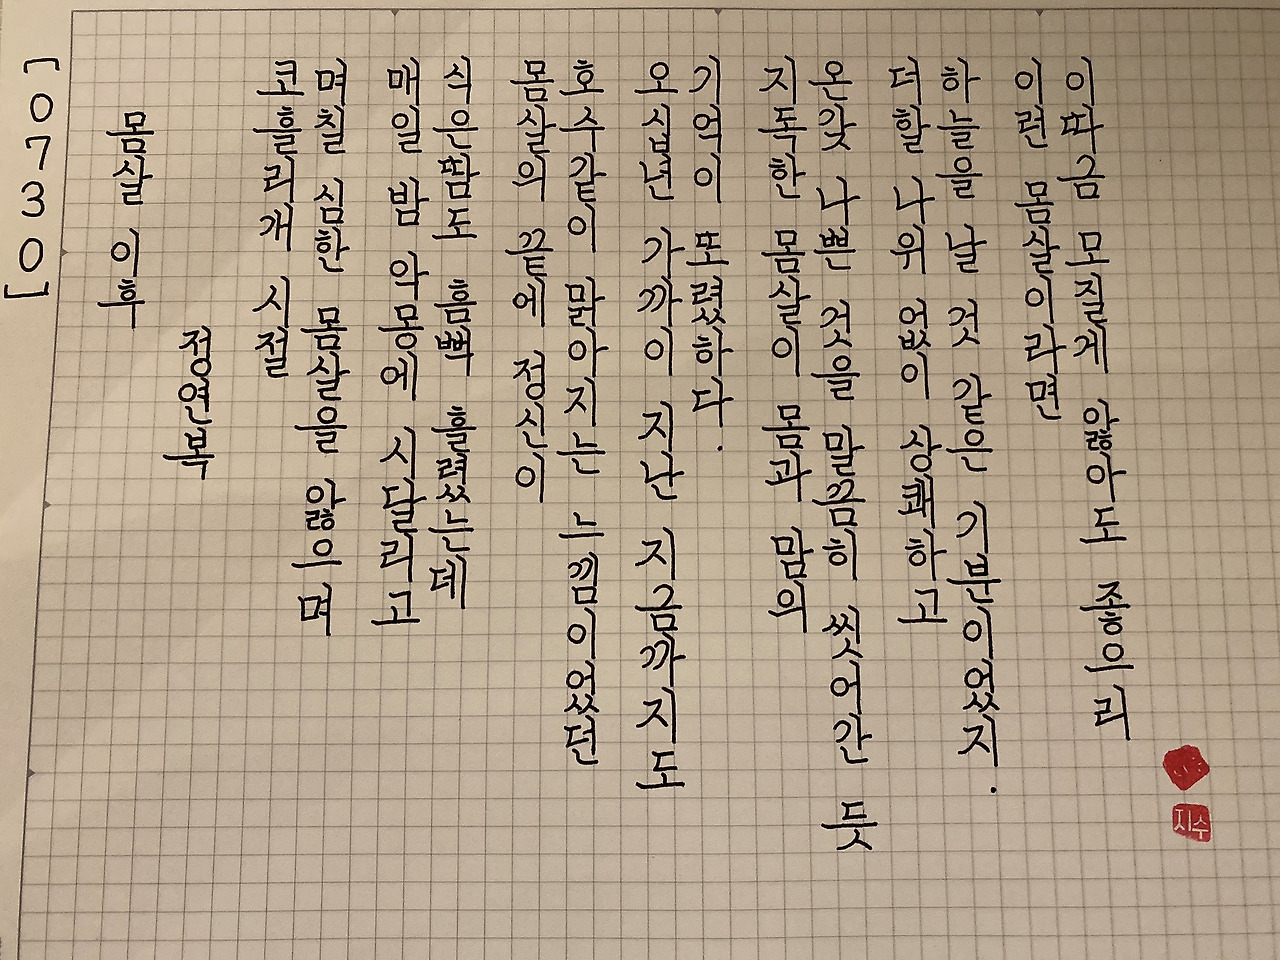 [0730]
몸살 이후
정연복
코흘리개 시절
며칠 심한 몸살을 앓으며
매일 밤 악몽에 시달리고
식은땀도 흠뻑 흘렸는데
몸살의 끝에 정신이
호수같이 맑아지는 느낌이었던
오십년 가까이 지난 지금까지도
기억이 또렸하다.
지독한 몸살이 몸과 맘의
온갖 나쁜 것을 말끔히 씻어간 듯
더할 나위 없이 상쾌하고
하늘을 날 것 같은 기분이었지.
이런 몸살이라면
이따금 모질게 앓아도 좋으리
지수